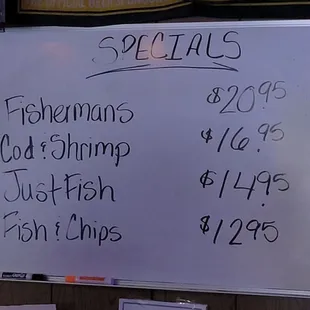 SPECIALS
Fishermans $20.95
Cod & Shrimp $16.95
Just Fish $14.95
Fish & Chips $12.95